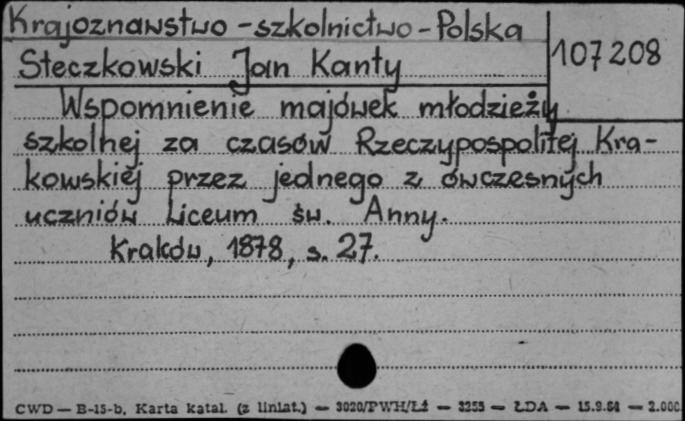 Krajoznawstwo - szkolnictwo - Polska
107208
Steczkowski Jan Kanty
Wspomnienie majówek młodzieży
szkolnej za czasów Rzeczypospolitej Kra-
kowskiej przez jednego z ówczesnych
uczniów Liceum św. Anny.
Kraków, 1878, s. 27.
CWD — B-15-b, Karta katal. (z liniat.) — 3020/PWH/Łź — 3255 — ŁDA — 15.9.61 — 2.000